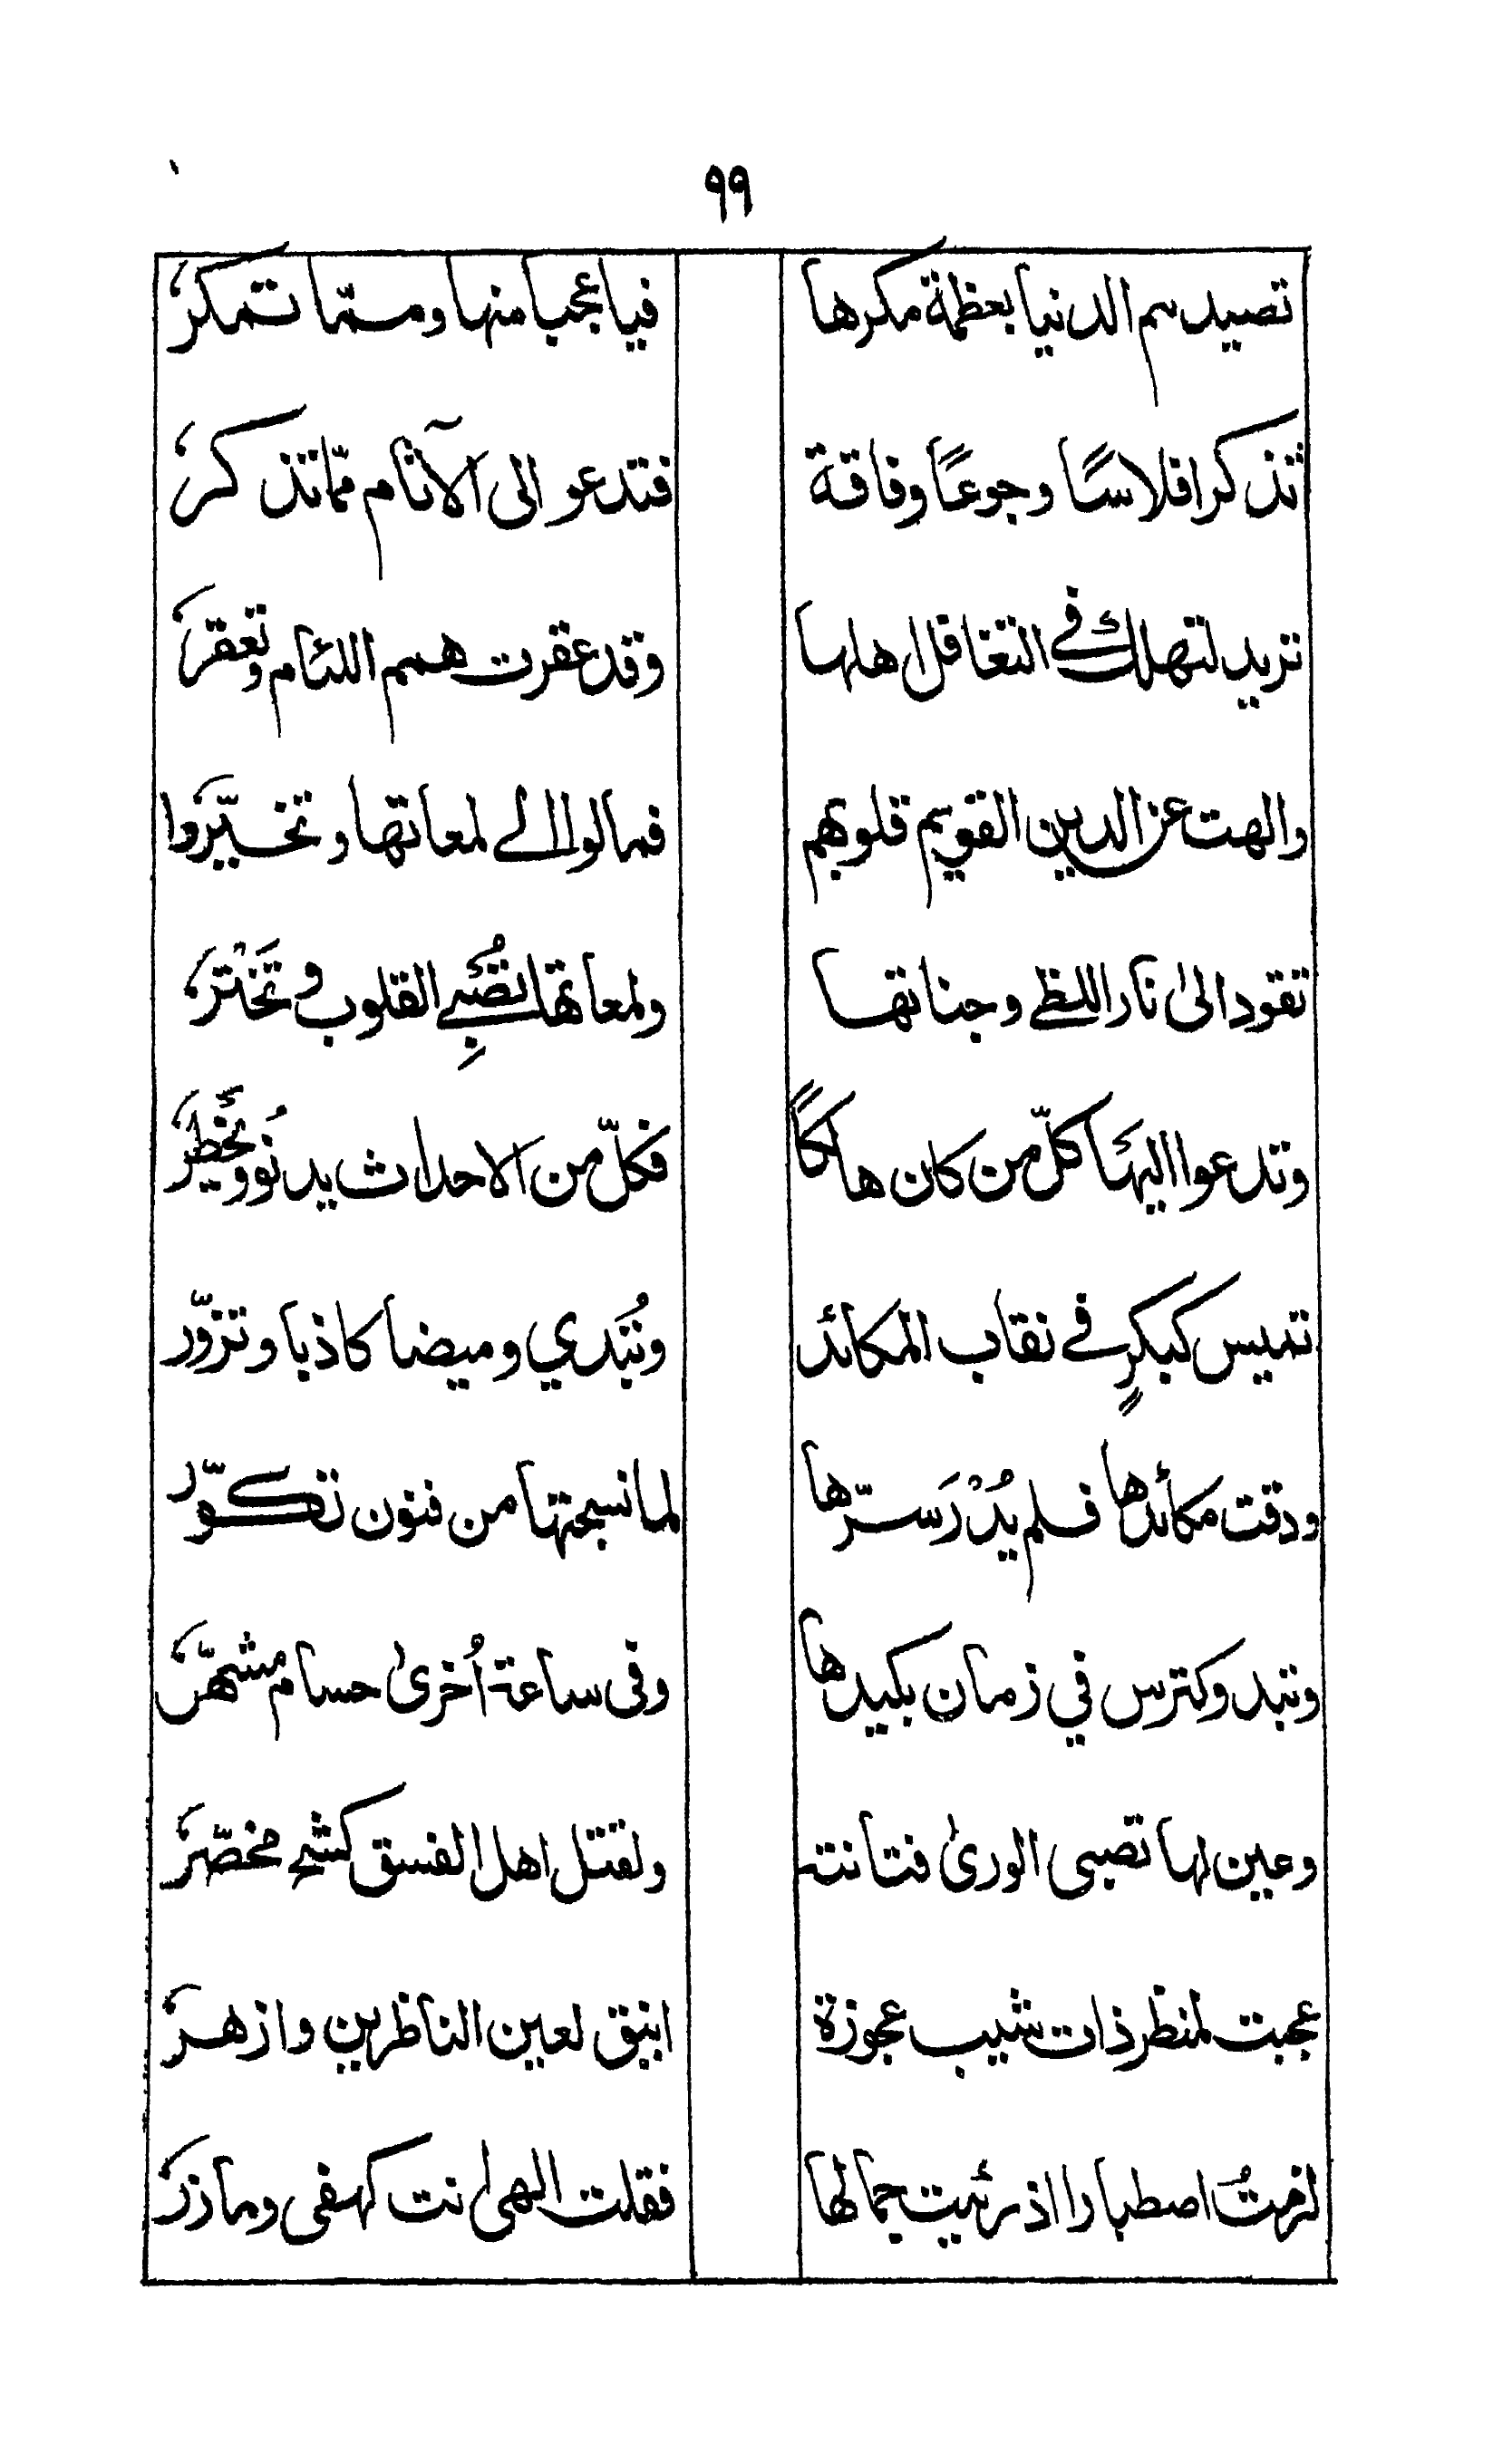 ٩٩
تصيدهم الدنيا بعظمة مكرها فيا عجبا منها ومما تمكر
تذكر افلاسًا وجوعًا وفاقة فتدعو الى الآثام مما تذكر
تريد لتهلك في التغافل اهلها وقد عقرت همم اللئام وتعقر
والهت عن الدين القويم قلوبهم فمالوا الى لمعاتها وتخيّروا
تقود الىٰ نار اللظى وجناتها ولمعاتها تُصْبِي القلوب وتَخْتر
وتدعوا اليها كلّ من كان هالكًا فكلّ من الاحداث يدنُو ويَخْطِر
تميس كبكرٍ في نقاب المكائد وتُبْدي وميضا كاذبا وتزوّر
ودقت مكائدها فلم يُدْرَ سرّها لما نسجتها من فنون تكوّر
وتبدو كترس في زمان بكيدها وفى ساعة اُخرىٰ حسام مشهّر
وعين لها تصبى الورىٰ فتانة ولقتل اهل الفسق كشح مخصّر
عجبت لمنظر ذات شيب عجوزة انيق لعين الناظرين وازهر
لزمتُ اصطبارا اذ رئيت جمالها فقلت الهى انت كهفى ومازر